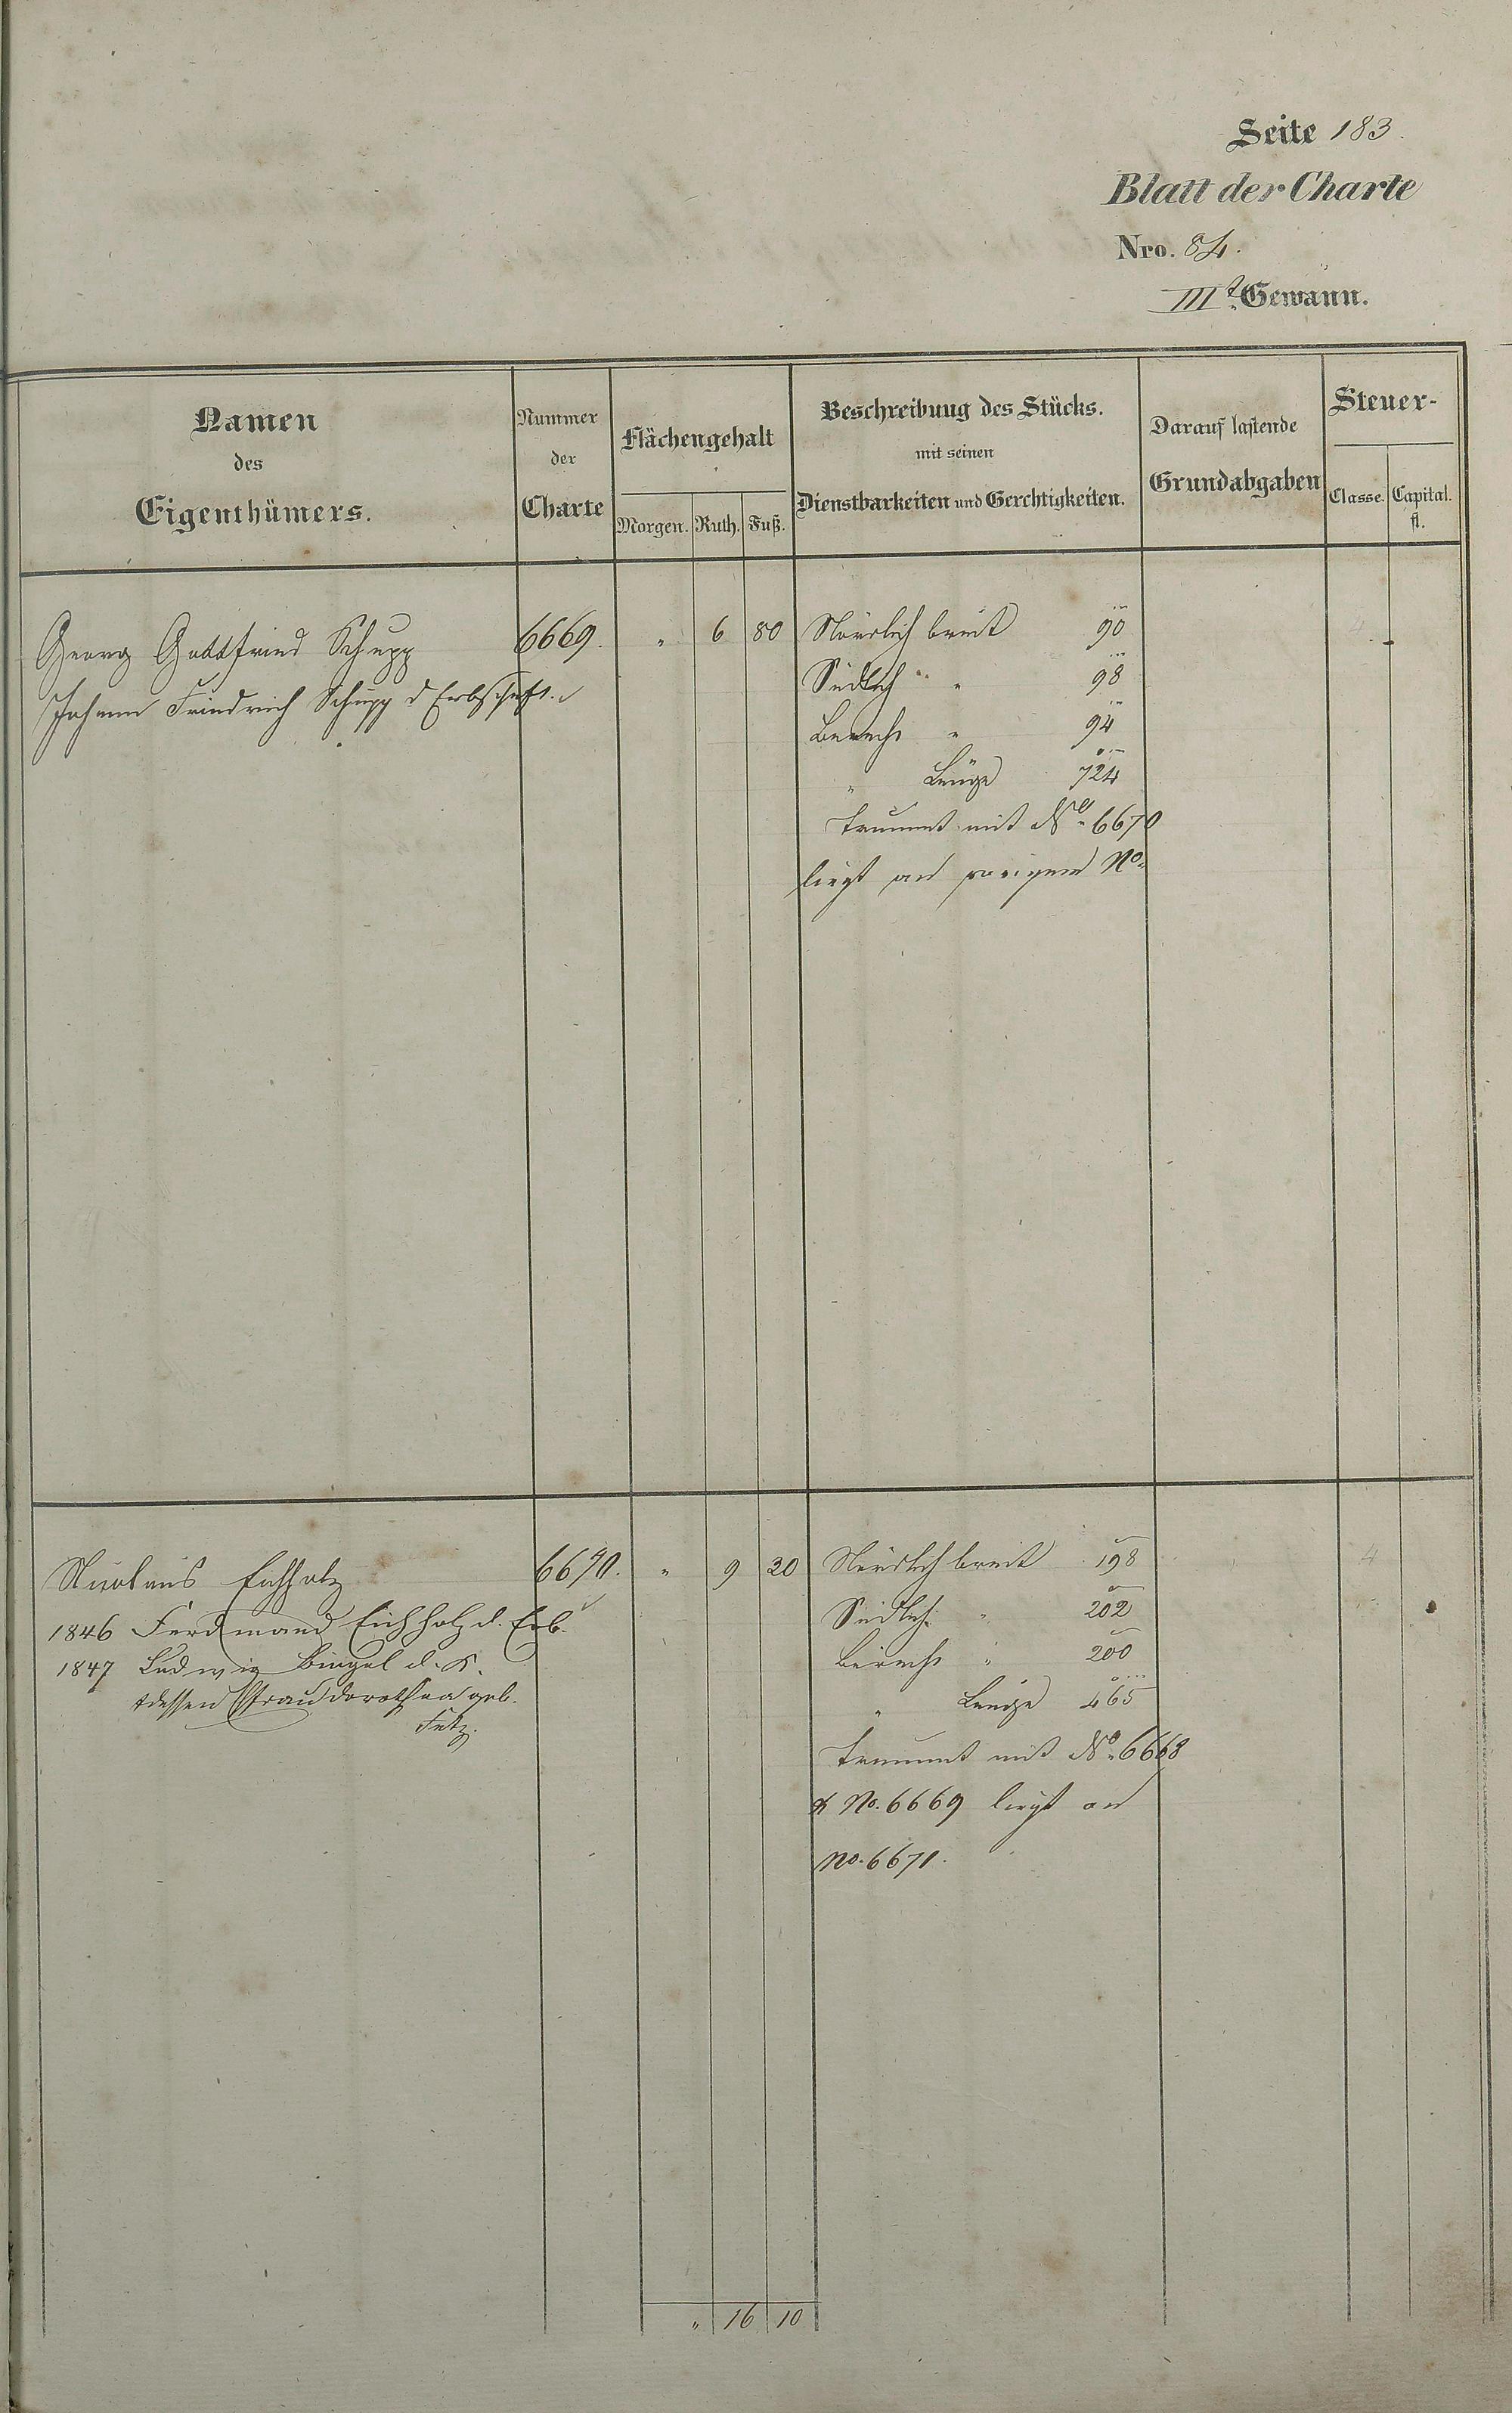 Seite 183.
Blatt der Charte
Nro. 84.
III.t Gewann.
Namen
des
Eigenthümers.
Nummer
der
Charte
Flächengehalt
Morgen. Ruth. Fuß.
Beschreibung des Stücks.
mit seinen
Dienstbarkeiten und Gerchtigkeiten.
Darauf lastende
Grundabgaben
Steuer-
Classe. Capital.
fl.
Georg Gottfried Schupp 6669. " 6 80 Nördlich breit 90 4
Johann Friedrich Schupp d Erbschaft.
Südlich " 98
Berech " 94
" Länge 724
trummt mit No. 6670
liegt an vorigem No.
Nicolaus Eichholz 6670. " 9 30 Nördlich breit 198 4
1846 Ferdinand Eichholz d. Erb.
Südlich " 202
1847 Ludwig Bingel d. K.
Berech " 200
&dessen Frau Dorothea geb.
" Länge 465
Fetz.
trummt mit No. 6668
& No. 6669 liegt an
No. 6671.
" 16 10